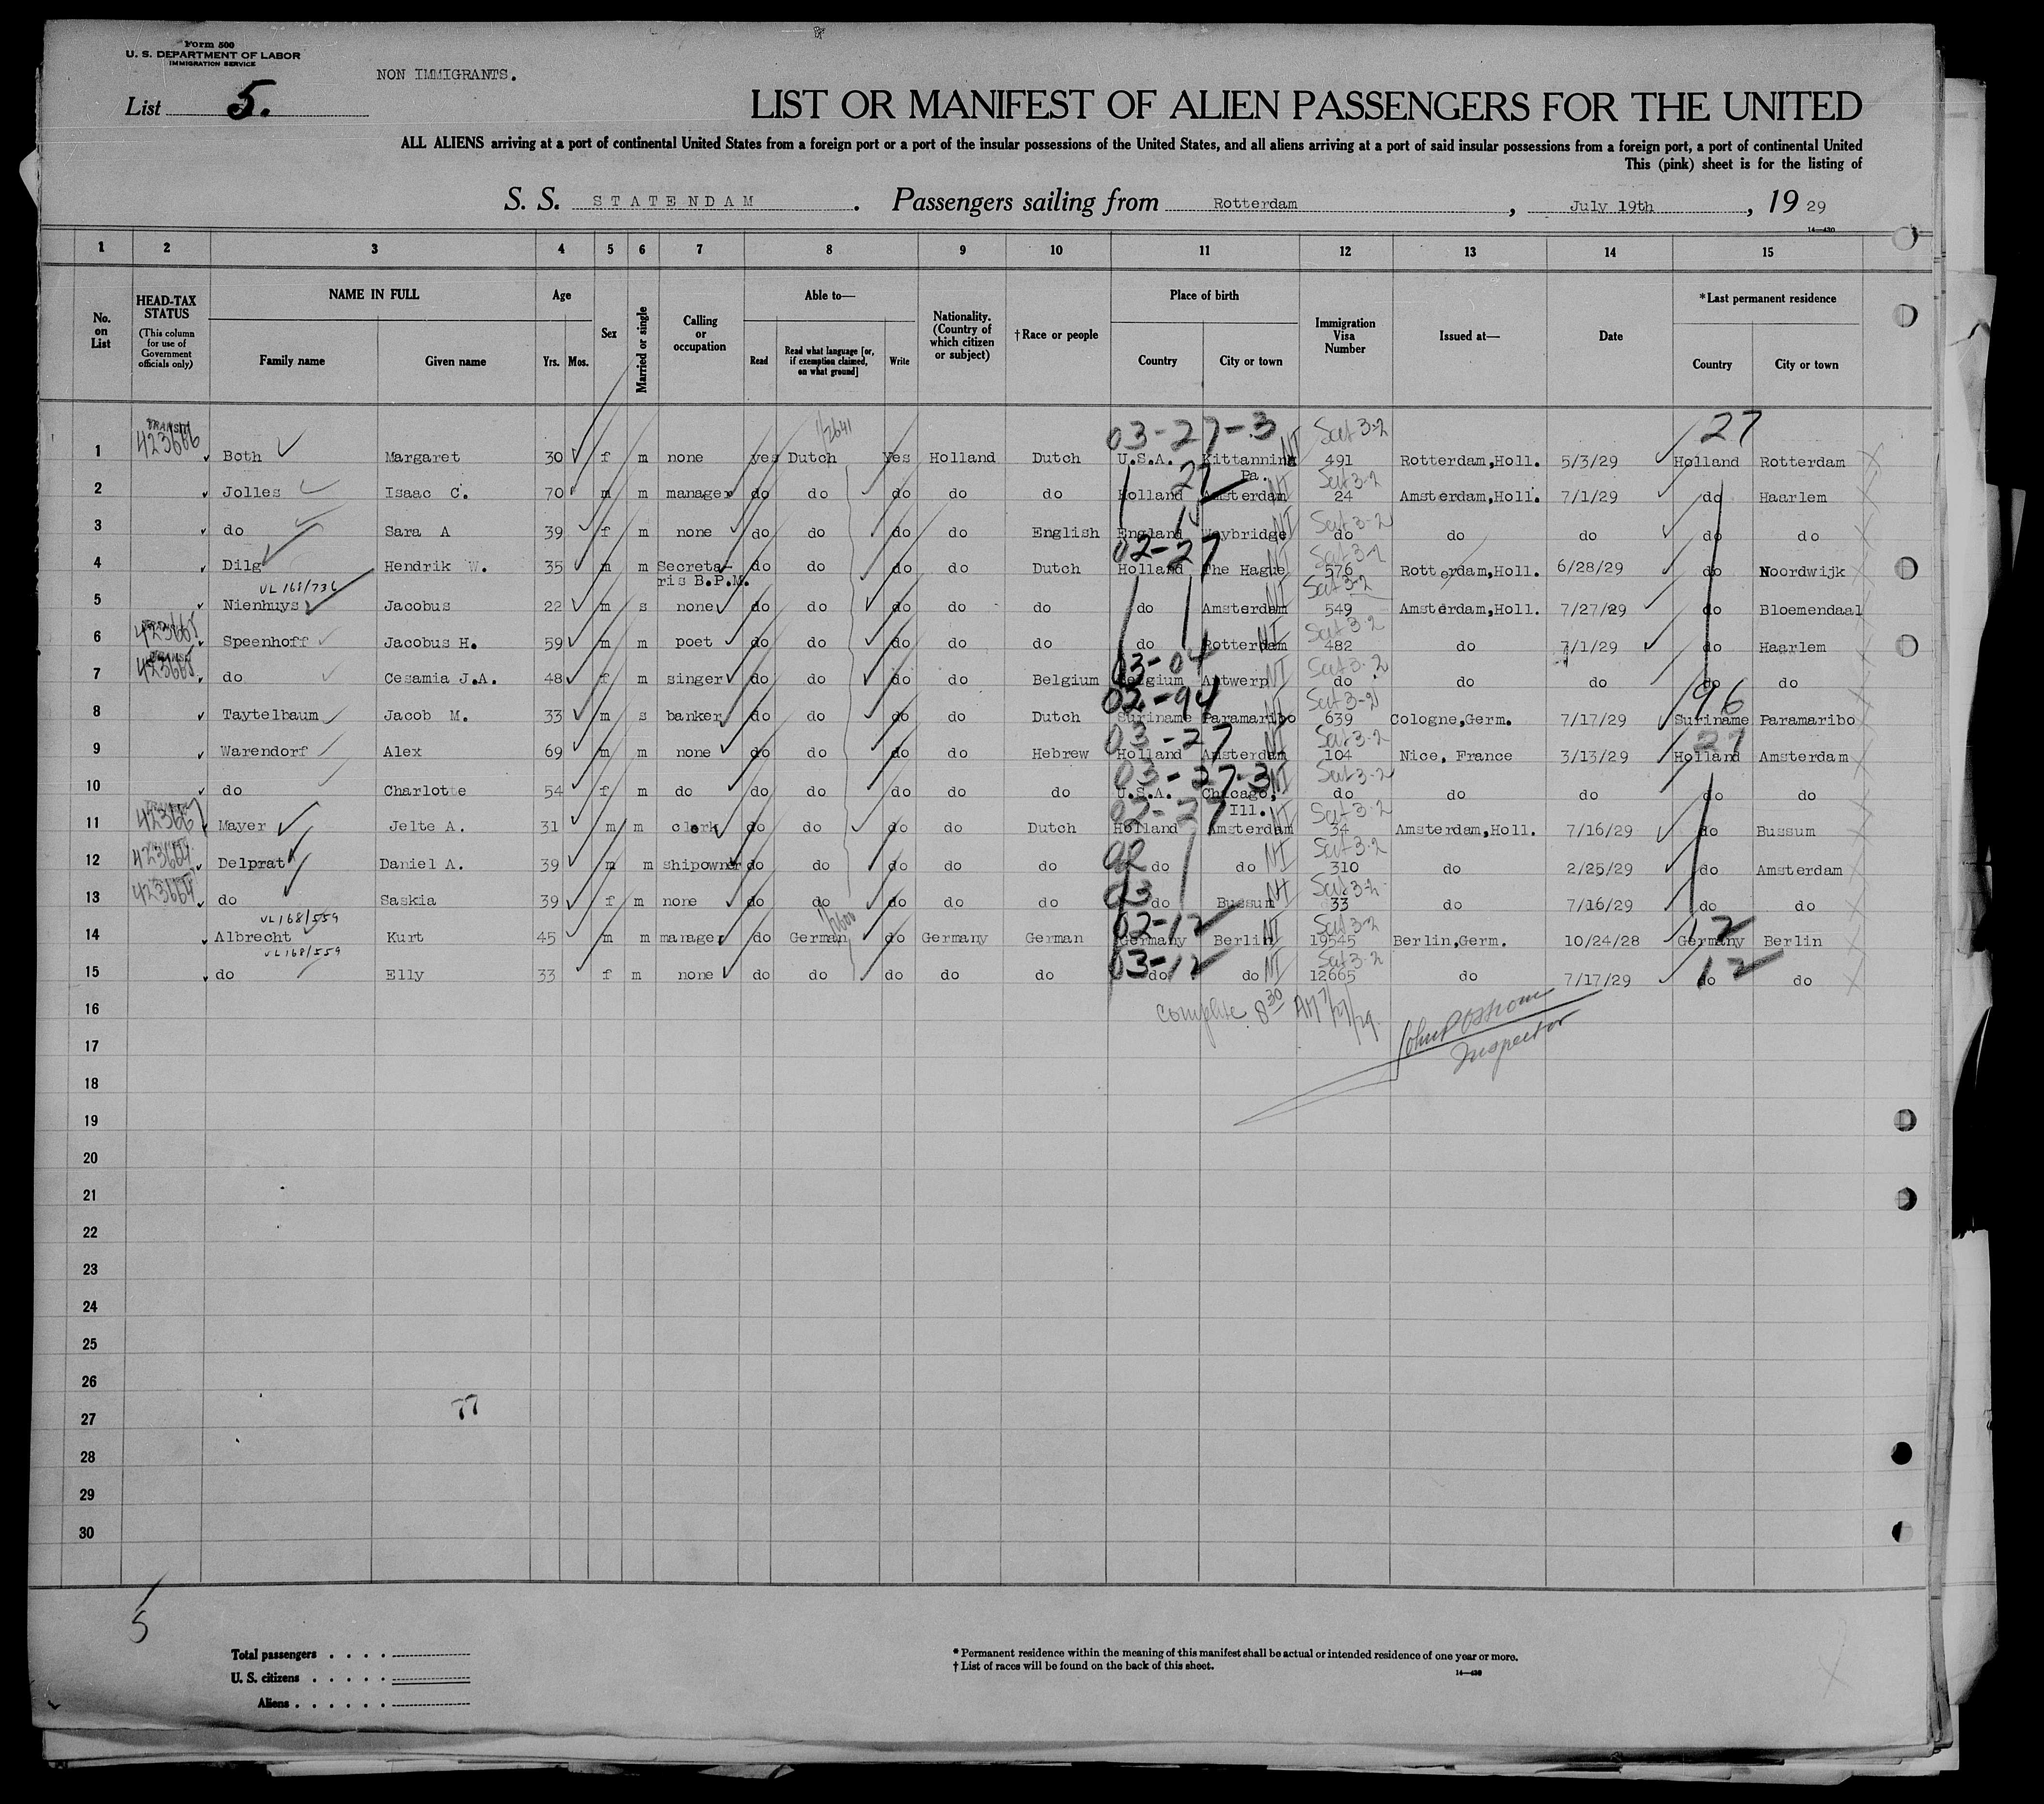 Form 500
U. S. DEPARTMENT OF LABOR
IMMIGRATION SERVICE
NON IMMIGRANTS.
List 5.
LIST OR MANIFEST OF ALIEN PASSENGERS FOR THE UNITED
ALL ALIENS arriving at a port of continental United States from a foreign port or a port of the insular possessions of the United States, and all aliens arriving at a port of said insular possessions from a foreign port, a port of continental United
This (pink) sheet is for the listing of
S. S. STATENDAM. Passengers sailing from Rotterdam, July 19th, 19 29
14—430
1 2 3 4 5 6 7 8 9 10 11 12 13 14 15
No. on List
HEAD-TAX STATUS (This column for use of Government officials only)
NAME IN FULL Family name Given name
Age Yrs. Mos.
Sex
Married or single
Calling or occupation
Able to— Read Read what language [or, if exemption claimed, on what ground] Write
Nationality. (Country of which citizen or subject)
†Race or people
Place of birth Country City or town
Immigration Visa Number
Issued at—
Date
*Last permanent residence Country City or town
1/2641 03-27-3 Sect 3-2 27
1 TRANSIT 423666 Both Margaret 30 f m none yes Dutch yes Holland Dutch U.S.A. Kittanning Pa. NI 491 Rotterdam,Holl. 5/3/29 Holland Rotterdam
27 Sect 3-2
2 Jolles Isaac C. 70 m m manager do do do do do Holland Amsterdam NI 24 Amsterdam,Holl. 7/1/29 do Haarlem
Sect 3-2
3 do Sara A 39 f m none do do do do English England Weybridge NI do do do do do
02-27 Sect 3-2
4 Dilg Hendrik W. 35 m m Secreta-ris B.P.M. do do do do Dutch Holland The Hague NI 576 Rotterdam,Holl. 6/28/29 do Noordwijk
VL 168/736 Sect 3-2
5 Nienhuys Jacobus 22 m s none do do do do do do Amsterdam NI 549 Amsterdam,Holl. 7/27/29 do Bloemendaal
Sect 3-2
6 423665 Speenhoff Jacobus H. 59 m m poet do do do do do do Rotterdam NI 482 do 7/1/29 do Haarlem
03-04 Sect 3-2
7 TRANSIT 423665 do Cesamia J.A. 48 f m singer do do do do Belgium Belgium Antwerp NI do do do do do
02-94 Sect 3-2 96
8 Taytelbaum Jacob M. 33 m s banker do do do do Dutch Suriname Paramaribo NI 639 Cologne,Germ. 7/17/29 Suriname Paramaribo
03-27 Sect 3-2 27
9 Warendorf Alex 69 m m none do do do do Hebrew Holland Amsterdam NI 104 Nice, France 3/13/29 Holland Amsterdam
03-27-3 Sect 3-2
10 do Charlotte 54 f m do do do do do do U.S.A. Chicago, Ill. NI do do do do do
02-27 Sect 3-2
11 TRANSIT 423667 Mayer Jelte A. 31 m m clerk do do do do Dutch Holland Amsterdam NI 34 Amsterdam,Holl. 7/16/29 do Bussum
02 Sect 3-2
12 423664 Delprat Daniel A. 39 m m shipowner do do do do do do do NI 310 do 2/25/29 do Amsterdam
03 Sect 3-2
13 423664 do Saskia 39 f m none do do do do do do Bussum NI 33 do 7/16/29 do do
VL 168/559 1/2600 02-12 Sect 3-2 12
14 Albrecht Kurt 45 m m manager do German do Germany German Germany Berlin NI 19545 Berlin,Germ. 10/24/28 Germany Berlin
VL 168/559 03-12 Sect 3-2 12
15 do Elly 33 f m none do do do do do do do NI 12665 do 7/17/29 do do
16 complete 8 30 AM 7/27/29
17 Inspector
18
19
20
21
22
23
24
25
26
27 77
28
29
30
5
Total passengers
U. S. citizens
Aliens
* Permanent residence within the meaning of this manifest shall be actual or intended residence of one year or more.
† List of races will be found on the back of this sheet.
14—430